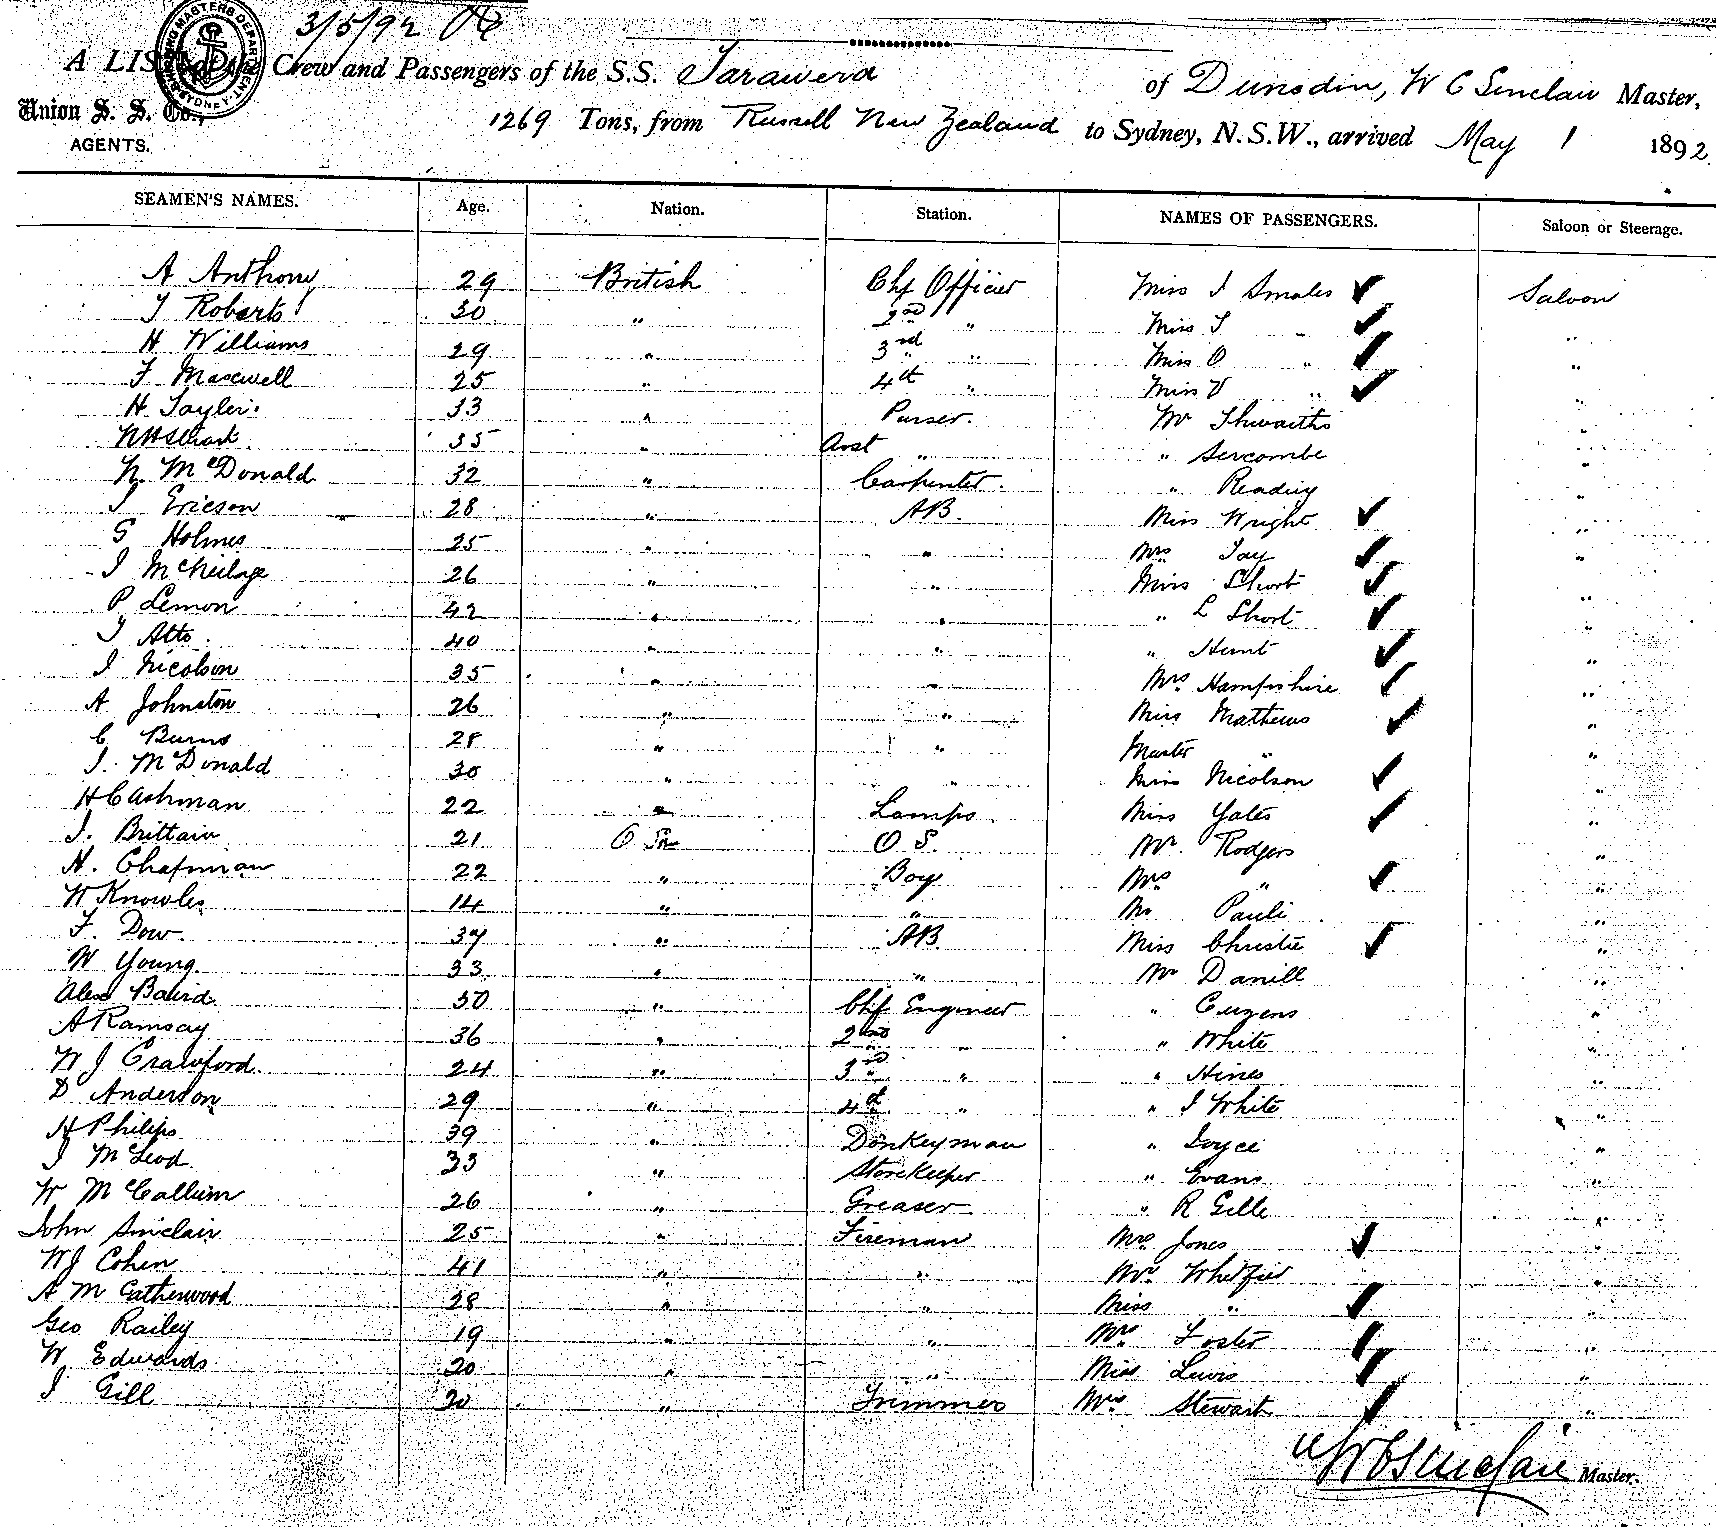 3/5/92
A LIST of the Crew and Passengers of the S.S. Tarawera of Dunedin, W C Sinclair Master,
Union S. S. Co., AGENTS. 1269 Tons, from Russell New Zealand to Sydney, N.S.W., arrived May 1 1892
SEAMEN'S NAMES. Age. Nation. Station. NAMES OF PASSENGERS. Saloon or Steerage.
A Anthony 29 British Chf Officer Miss I Smales ✓ Saloon
T Roberts 30 " 2nd " Miss S " ✓ "
H Williams 29 " 3rd " Miss O " ✓ "
F Maxwell 25 " 4th " Miss V " ✓ "
H Tayler 33 " Purser. Mr Thwaiths "
35 " Asst " " Sercombe "
N. McDonald 32 " Carpenter " Reading "
J Ericson 28 " AB. Miss Wright ✓ "
G Holmes 25 " " Mrs Tay ✓ "
J McNeilage 26 " " Miss Short ✓ "
P Lemon 42 " " " L Short ✓ "
T Atto 40 " " " Hunt ✓ "
J Nicolson 35 " " Mrs Hampshire ✓ "
A Johnston 26 " " Miss Mathews ✓ "
C Burns 28 " " Master " "
J. McDonald 30 " " Miss Nicolson ✓ "
H C Ashman 22 " Lamps Miss Yates ✓ "
J. Brittain 21 O S. Mr. Rodgers "
H. Chapman 22 " Boy Mrs " ✓ "
W Knowles 14 " " Mr Pauli "
F. Dow. 37 " AB Miss Christie ✓ "
W Young. 33 " " Mr Danill "
Alex Baird 50 " Chf Engineer " Cuzens "
A Ramsay 36 " 2nd " " White "
W J Crawford. 24 " 3rd " " Hines "
D Anderson 29 " 4th " " J White "
H Philips 39 " Donkeyman " Joyce "
J McLeod 33 " Storekeeper " Evans "
W McCallum 26 " Greaser " R Gille "
John Sinclair 25 " Fireman Mrs Jones ✓ "
W J Cohen 41 " " Mr Whitfied "
A McCatherwood 28 " " Miss " ✓ "
Geo Railey 19 " " Mrs Foster ✓ "
W Edwards 20 " " Miss Lewis ✓ "
J Gill 20 " Trimmer Mrs Stewart ✓ "
W C Sinclair Master.